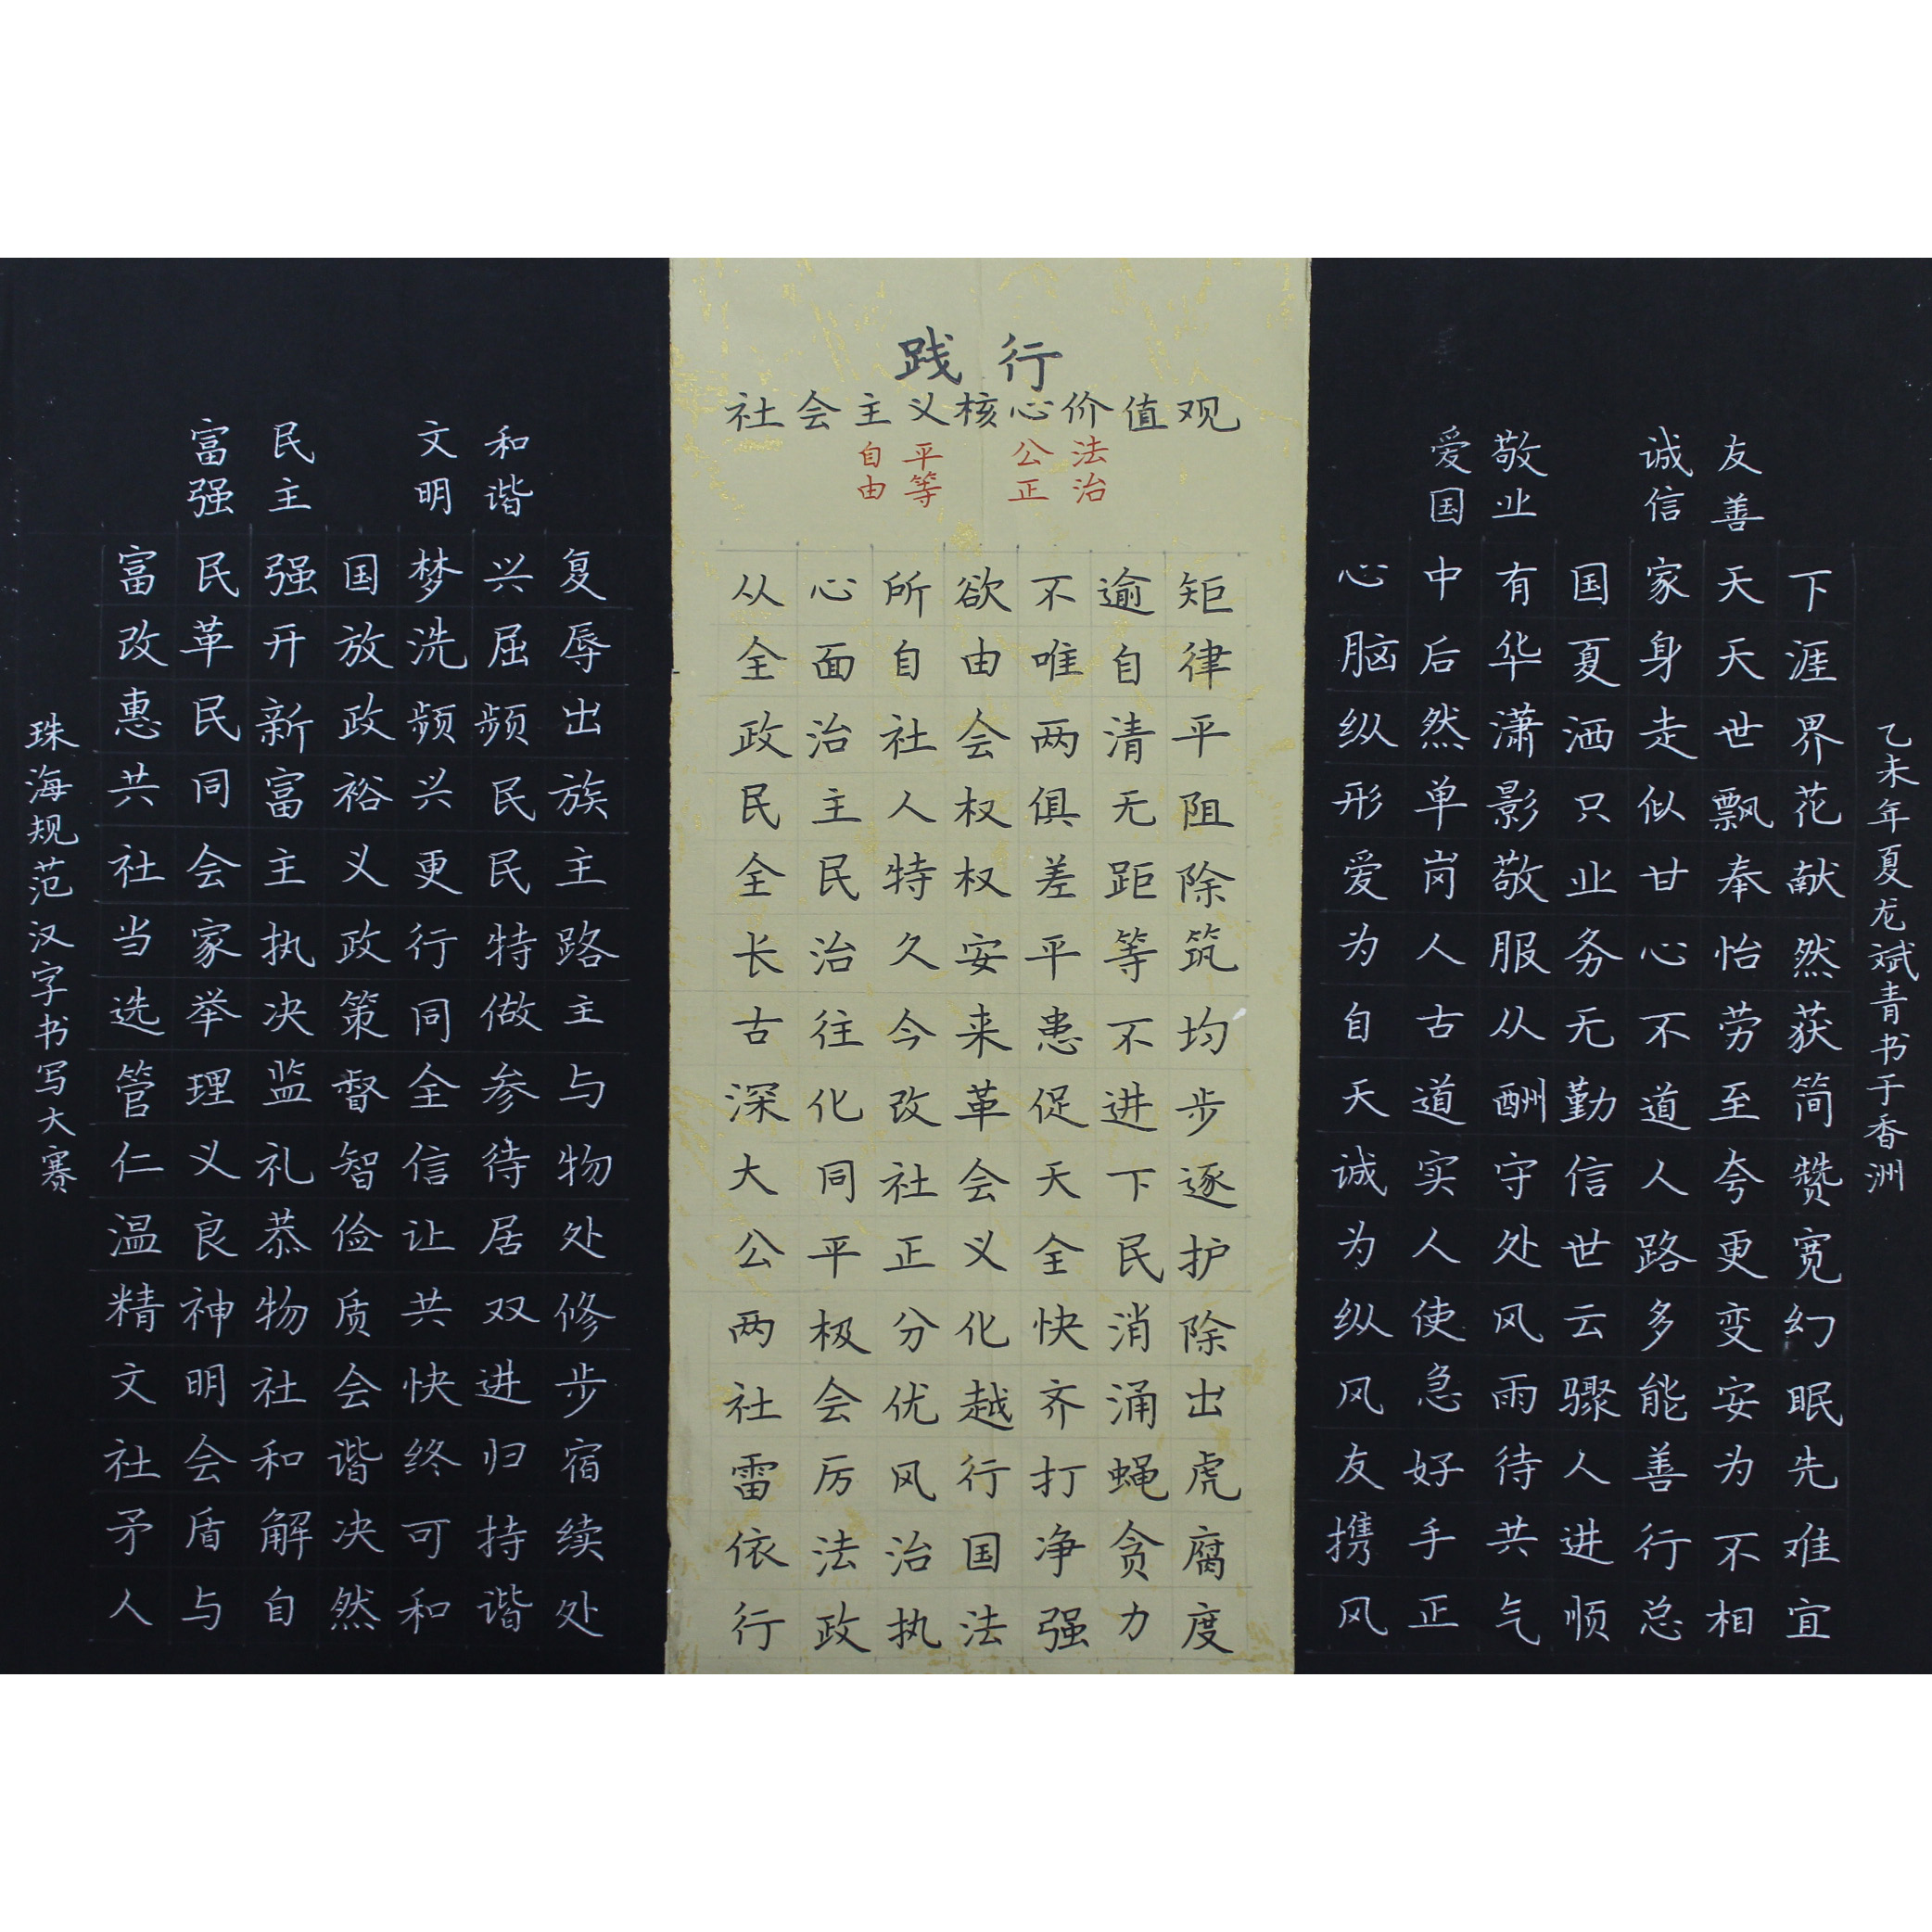 珠海规范汉字书写大赛
富强 民主 文明 和谐
富民强国梦兴复
改革开放洗屈辱
惠民新政频频出
共同富裕兴民族
社会主义更民主
当家执政行特路
选举决策同做主
管理监督全参与
仁义礼智信待物
温良恭俭让居处
精神物质共双修
文明社会快进步
社会和谐终归宿
矛盾解决可持续
人与自然和谐处
践行
社会主义核心价值观
自由 平等 公正 法治
从心所欲不逾矩
全面自由唯自律
政治社会两清平
民主人权俱无阻
全民特权差距除
长治久安平等筑
古往今来患不均
深化改革促进步
大同社会天下逐
公平正义全民护
两极分化快消除
社会优越齐涌出
雷厉风行打蝇虎
依法治国净贪腐
行政执法强力度
爱国 敬业 诚信 友善
心中有国家天下
脑后华夏身天涯
纵然潇洒走世界
形单影只似飘花
爱岗敬业甘奉献
为人服务心怡然
自古从无不劳获
天道酬勤道至简
诚实守信人夸赞
为人处世路更宽
纵使风云多变幻
风急雨骤能安眠
友好待人善为先
携手共进行不难
风正气顺总相宜
乙未年夏龙斌青书于香洲